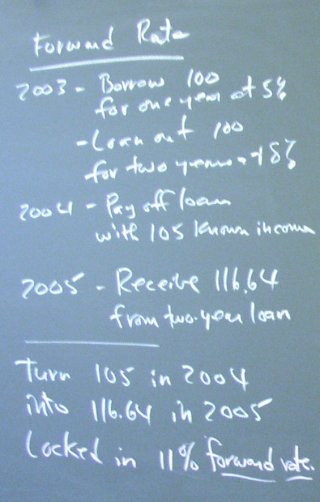 Forward Rate
2003 - Borrow 100
for one year at 5%
- Loan out 100
for two years at 8%
2004 - Pay off loan
with 105 known income
2005 - Receive 116.64
from two-year loan
Turn 105 in 2004
into 116.64 in 2005
Locked in 11% forward rate.